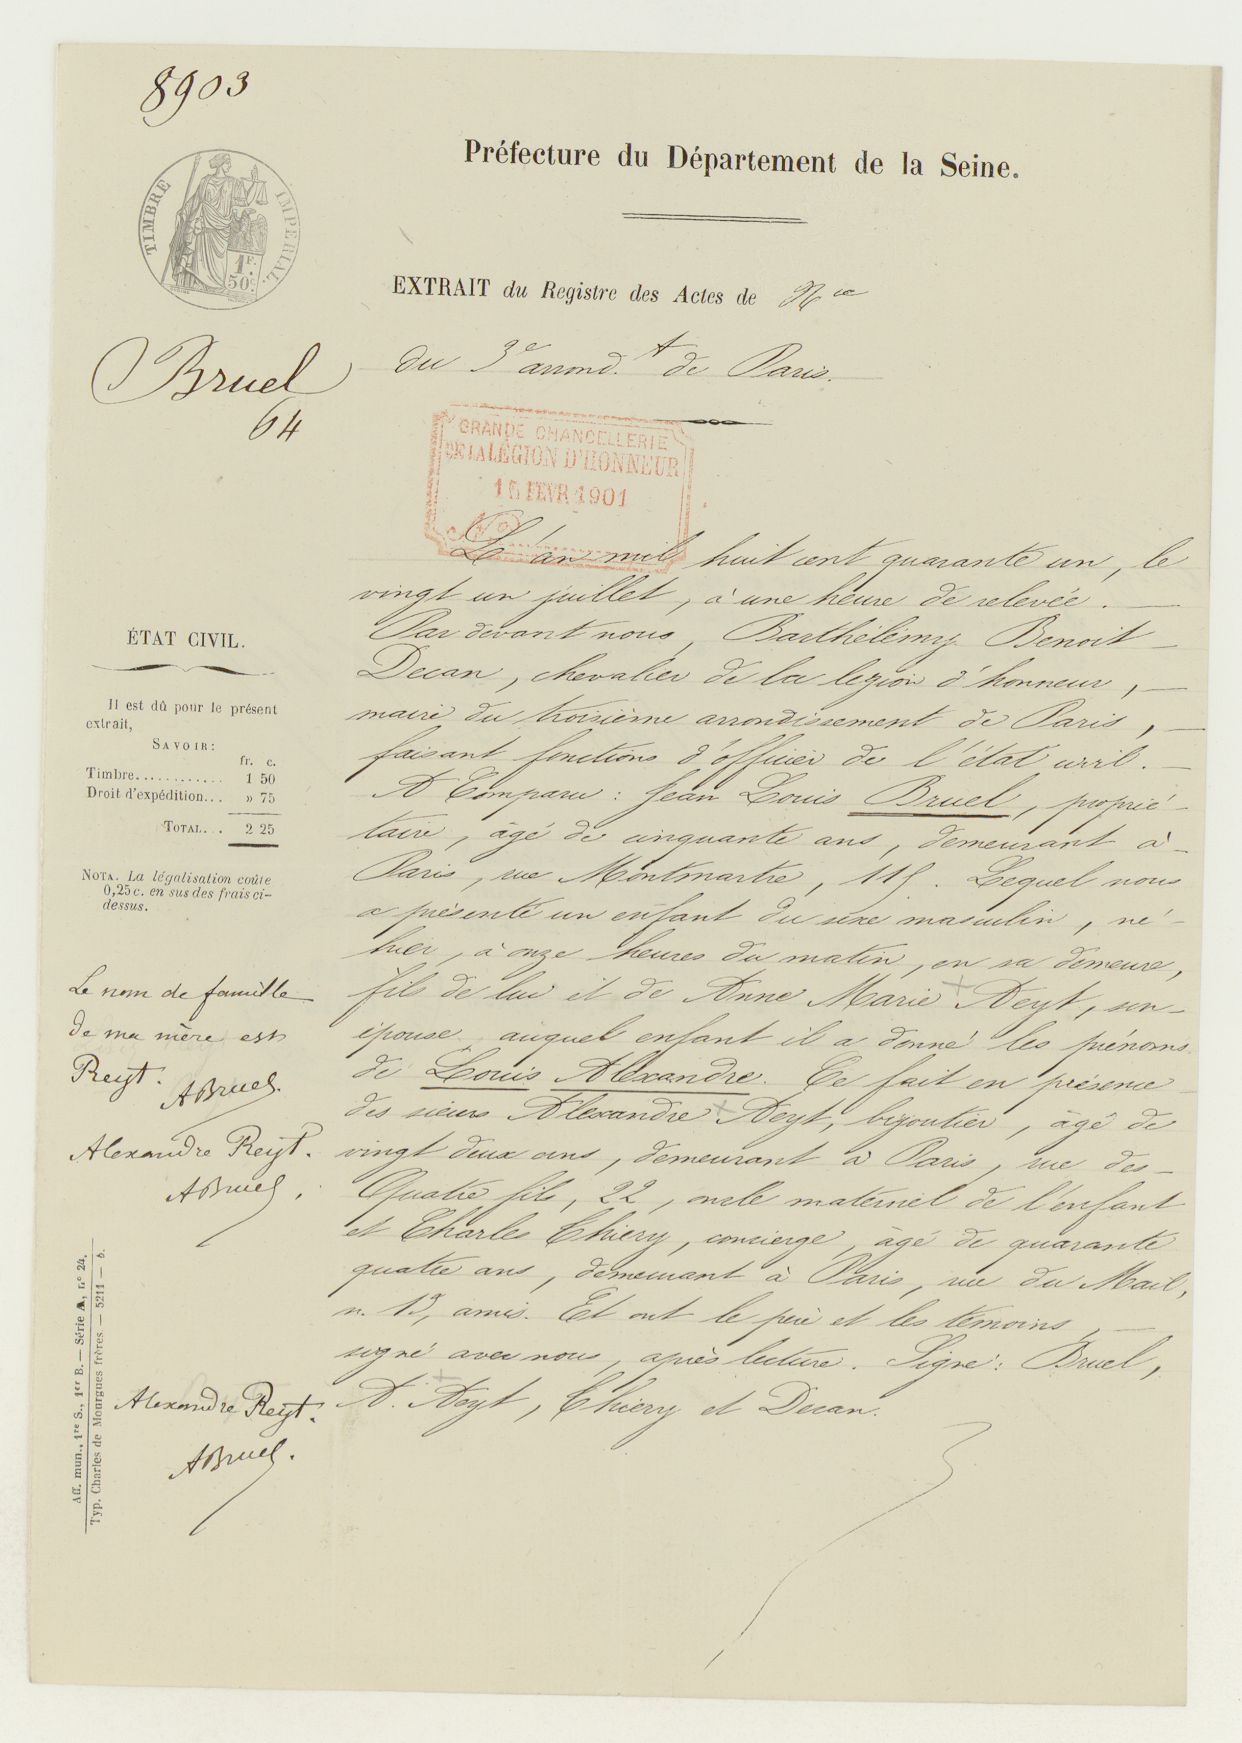 8903
Préfecture du Département de la Seine.
TIMBRE IMPÉRIAL.
1F.
50c.
EXTRAIT du Registre des Actes de Nce
du 3e arrond.t de Paris.
Bruel
64
GRANDE CHANCELLERIE
DE LA LÉGION D'HONNEUR
15 FEVR 1901
No
L'an mil huit cent quarante un, le
vingt un juillet, à une heure de relevée.
Par devant nous, Barthélemy Benoit
Decan, chevalier de la légion d'honneur,
maire du troisième arrondissement de Paris,
faisant fonctions d'officier de l'état civil.
A Comparu : Jean Louis Bruel, proprié-
taire, âgé de cinquante ans, demeurant à
Paris, rue Montmartre, 115. Lequel nous
a présenté un enfant du sexe masculin, né
hier, à onze heures du matin, en sa demeure,
fils de lui et de Anne Marie Neyt, son
épouse, auquel enfant il a donné les prénoms
de Louis Alexandre. Ce fait en présence
des sieurs Alexandre Neyt, bijoutier, âgé de
vingt deux ans, demeurant à Paris, rue des
Quatre fils, 22, oncle maternel de l'enfant
et Charles Thiery, concierge, âgé de quarante
quatre ans, demeurant à Paris, rue du Mail,
n. 13, amis. Et ont le père et les témoins,
signé avec nous, après lecture. Signé : Bruel,
A. Neyt, Thiery et Decan.
ÉTAT CIVIL.
Il est dû pour le présent
extrait,
SAVOIR:
fr. c.
Timbre............ 1 50
Droit d'expédition... » 75
TOTAL... 2 25
NOTA. La légalisation coûte
0,25 c. en sus des frais ci-
dessus.
Le nom de famille
de ma mère est
Reyt.
ABruel.
Alexandre Reyt.
ABruel.
Alexandre Reyt.
ABruel.
Aff. mun., 1re S., 1er B. — Série A, n° 24.
Typ. Charles de Mourgues frères. — 5211 — 6.